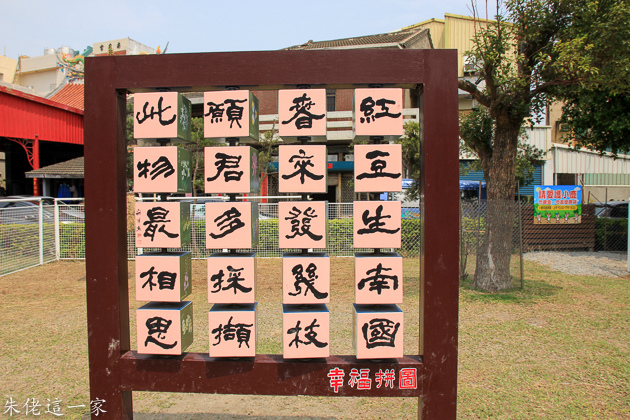 紅豆生南國
春來發幾枝
願君多採擷
此物最相思
幸福拼圖
朱佬這一家